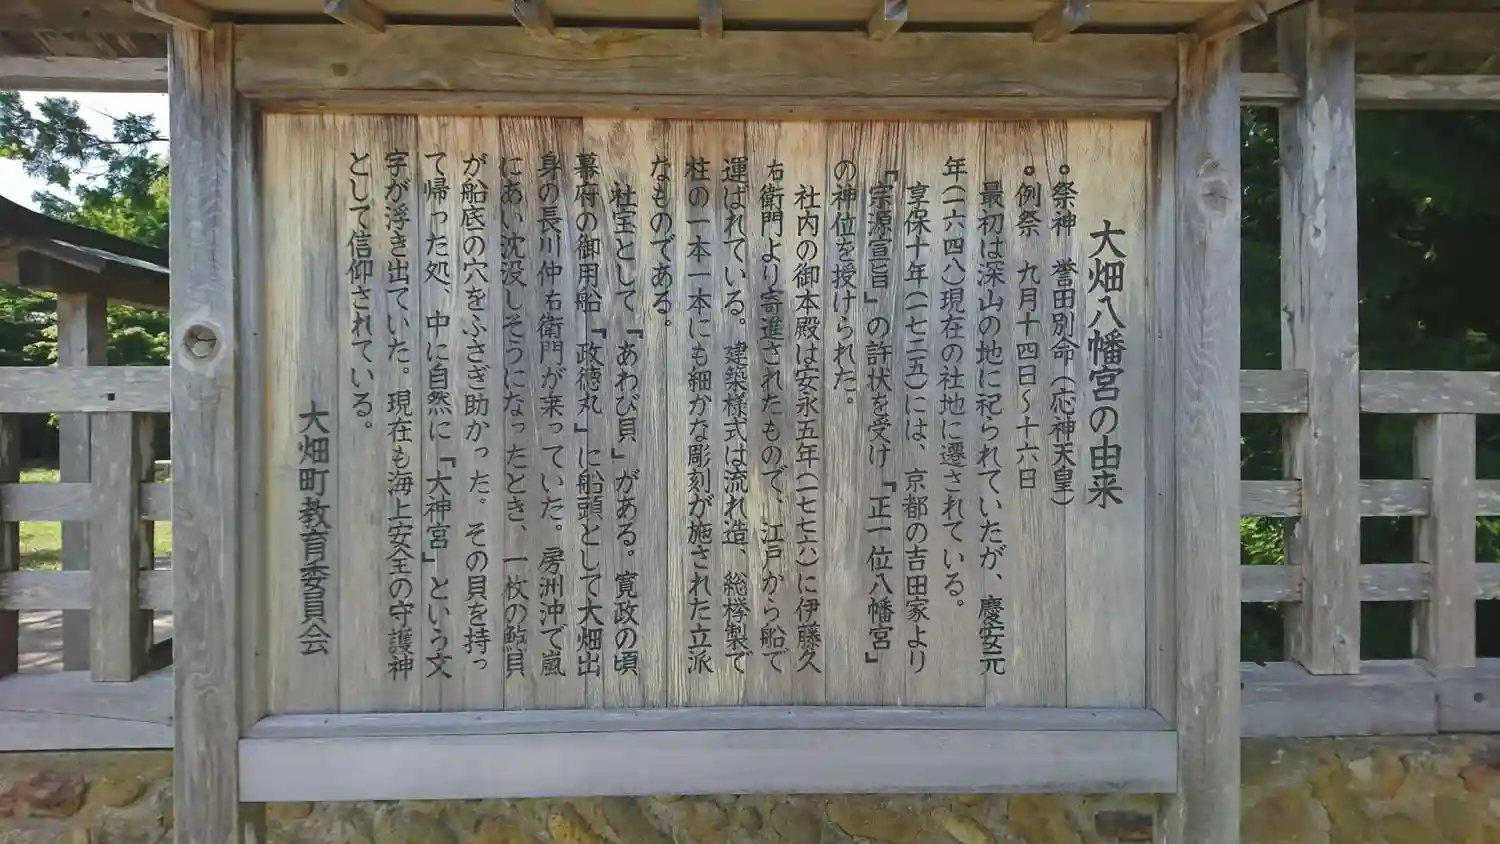 大畑八幡宮の由来
⚬祭神　誉田別命（応神天皇）
⚬例祭　九月十四日〜十六日
最初は深山の地に祀られていたが、慶安元
年（一六四八）現在の社地に遷されている。
享保十年（一七二五）には、京都の吉田家より
「宗源宣旨」の許状を受け「正一位八幡宮」
の神位を授けられた。
社内の御本殿は安永五年（一七七六）に伊藤久
右衛門より寄進されたもので、江戸から船で
運ばれている。建築様式は流れ造、総欅製で
柱の一本一本にも細かな彫刻が施された立派
なものである。
社宝として「あわび貝」がある。寛政の頃
幕府の御用船「政徳丸」に船頭として大畑出
身の長川仲右衛門が乗っていた。房洲沖で嵐
にあい沈没しそうになったとき、一枚の鮑貝
が船底の穴をふさぎ助かった。その貝を持っ
て帰った処、中に自然に「大神宮」という文
字が浮き出ていた。現在も海上安全の守護神
として信仰されている。
大畑町教育委員会